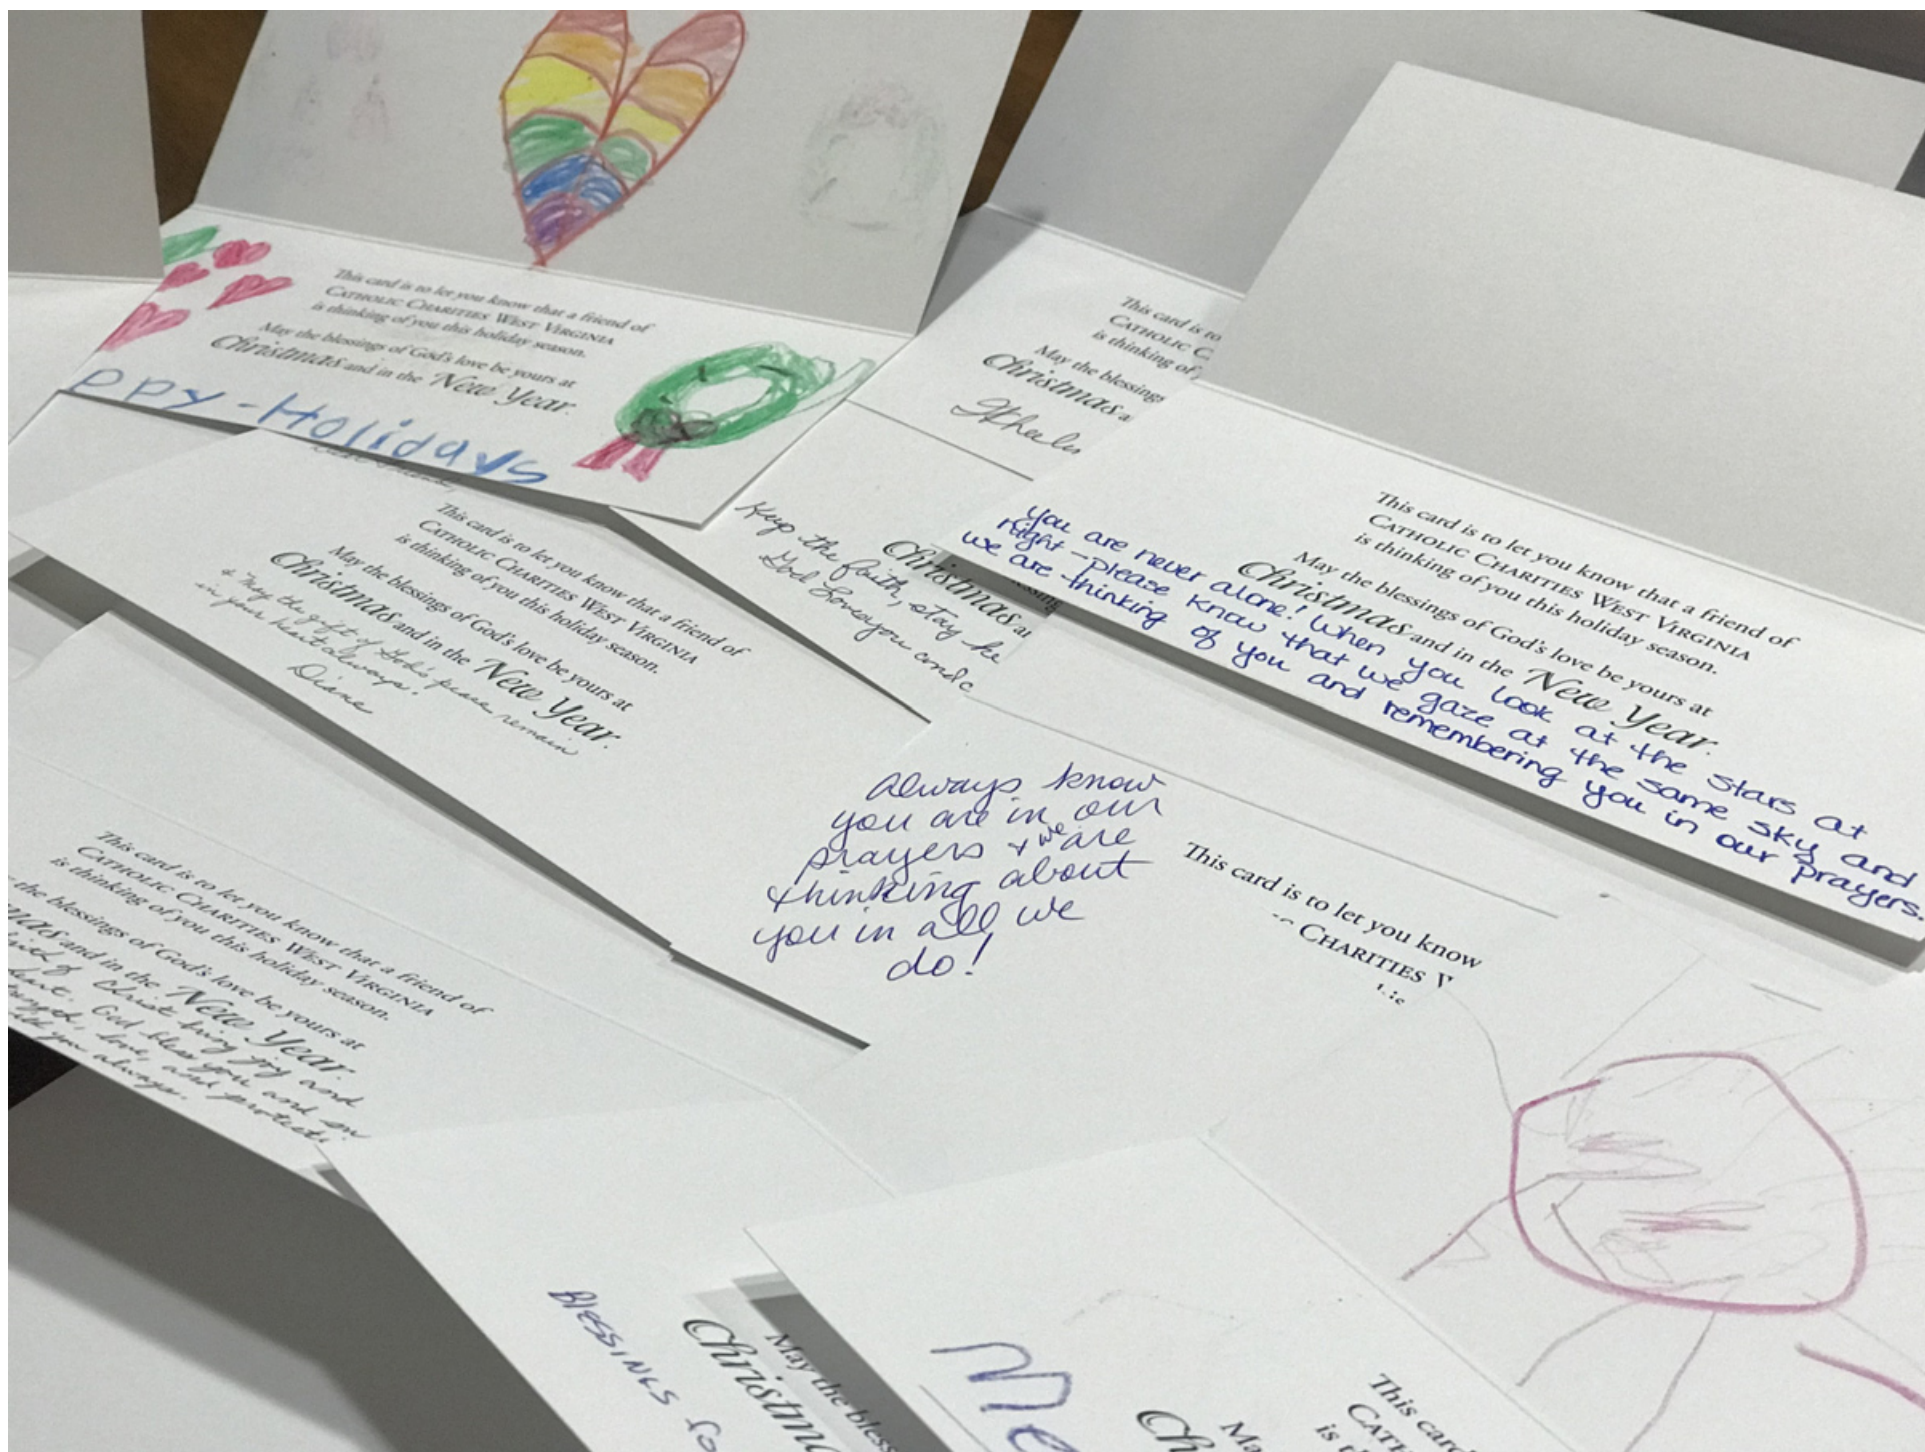 This card is to let you know that a friend of
CATHOLIC CHARITIES WEST VIRGINIA
is thinking of you this holiday season.
May the blessings of God's love be yours at
Christmas and in the New Year.
ppy-Holidays
This card is to
CATHOLIC C
is thinking of
May the blessings
Christmas a
This card is to let you know that a friend of
CATHOLIC CHARITIES WEST VIRGINIA
is thinking of you this holiday season.
May the blessings of God's love be yours at
Christmas and in the New Year.
& May the gift of God's peace remain
in your heart always!
Diane
Keep the faith, stay
God Loves you and
Christmas a
This card is to let you know that a friend of
CATHOLIC CHARITIES WEST VIRGINIA
is thinking of you this holiday season.
May the blessings of God's love be yours at
Christmas and in the New Year.
You are never alone! When you look at the stars at
night - please know that we gaze at the same sky and
we are thinking of you and remembering you in our prayers.
Always know
you are in our
prayers & we are
thinking about
you in all we
do!
This card is to let you know
CHARITIES
This card is to let you know that a friend of
CATHOLIC CHARITIES WEST VIRGINIA
is thinking of you this holiday season.
the blessings of God's love be yours at
mas and in the New Year.
of Christ bring joy and
God bless you and
love, and protect
you always.
Blessings fo
May the bless
Christma
Me
This card
CATH
is t
Ma
Ch